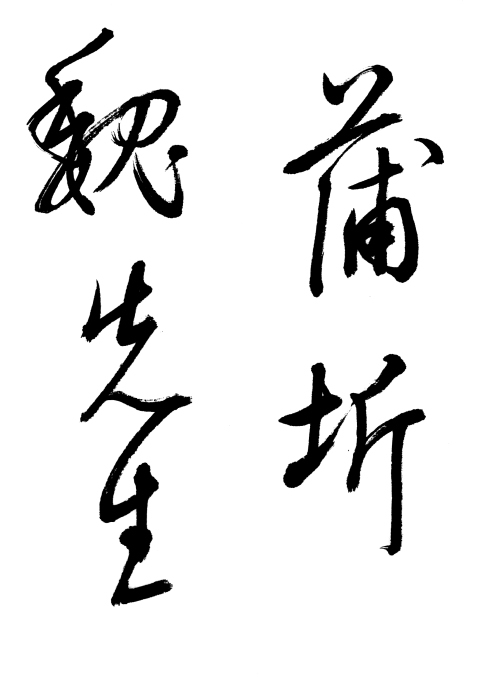 蒲圻
魏先生